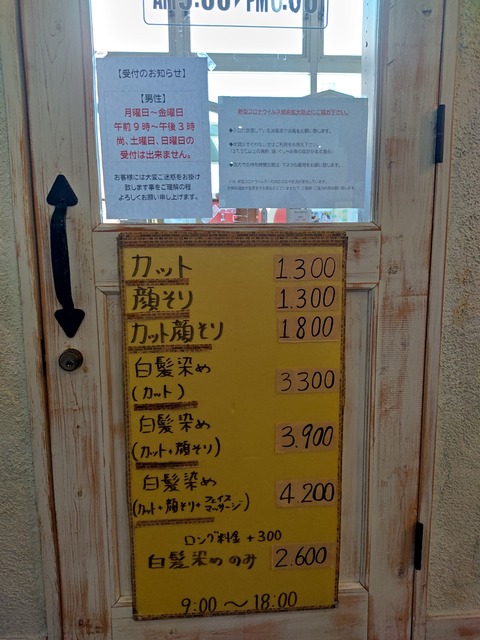 【受付のお知らせ】
【男性】
月曜日～金曜日
午前9時～午後3時
尚、土曜日、日曜日の
受付は出来ません。
お客様には大変ご迷惑をお掛け
致します事をご理解の程
よろしくお願い申し上げます。
カット 1.300
顔そり 1.300
カット顔そり 1800
白髪染め
(カット) 3300
白髪染め
(カット+顔そり) 3.900
白髪染め
(カット+顔そり+フェイスマッサージ) 4.200
ロング料金 +300
白髪染めのみ 2.600
9:00～18:00